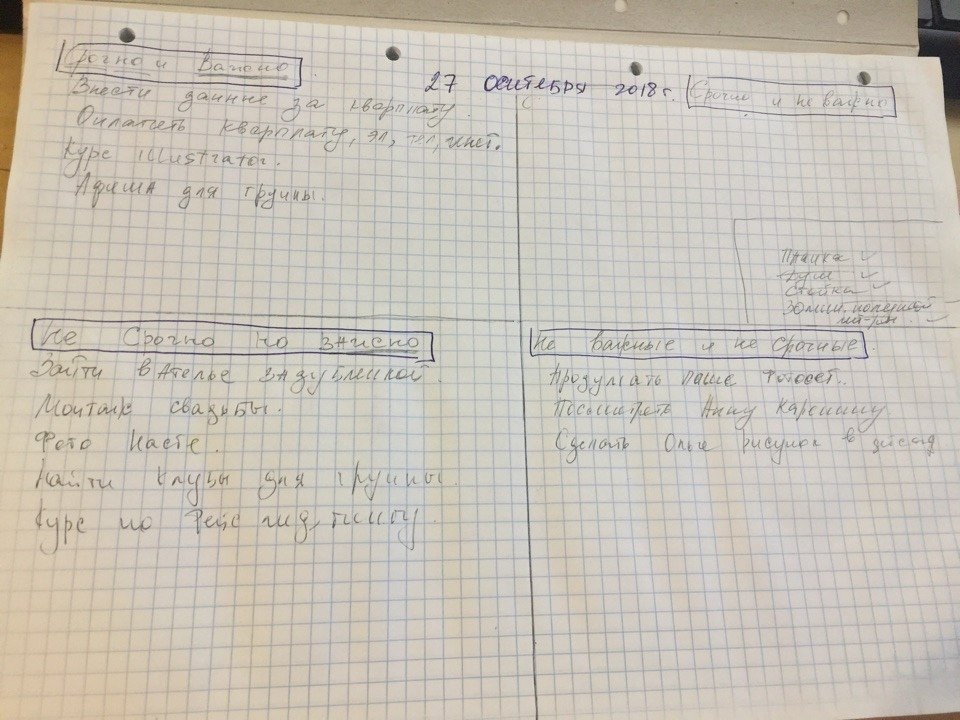 Срочно и Важно
27 сентября 2018 г.
Срочно и не важно
Внести данные за квартплату.
Оплатить квартплату, эл, тел, инет.
Курс illustrator.
Афиша для группы.
Планка ✓
✓
Стойка ✓
30 мин. ✓
Не Срочно но важно
Зайти в Ателье за дубленкой.
Монтаж свадьбы.
Фото Насте.
Найти клубы для группы.
Курс по
Не важные и не срочные.
Продумать Паше Фотосет.
Посмотреть Анну Каренину
Сделать Ольге рисунок в